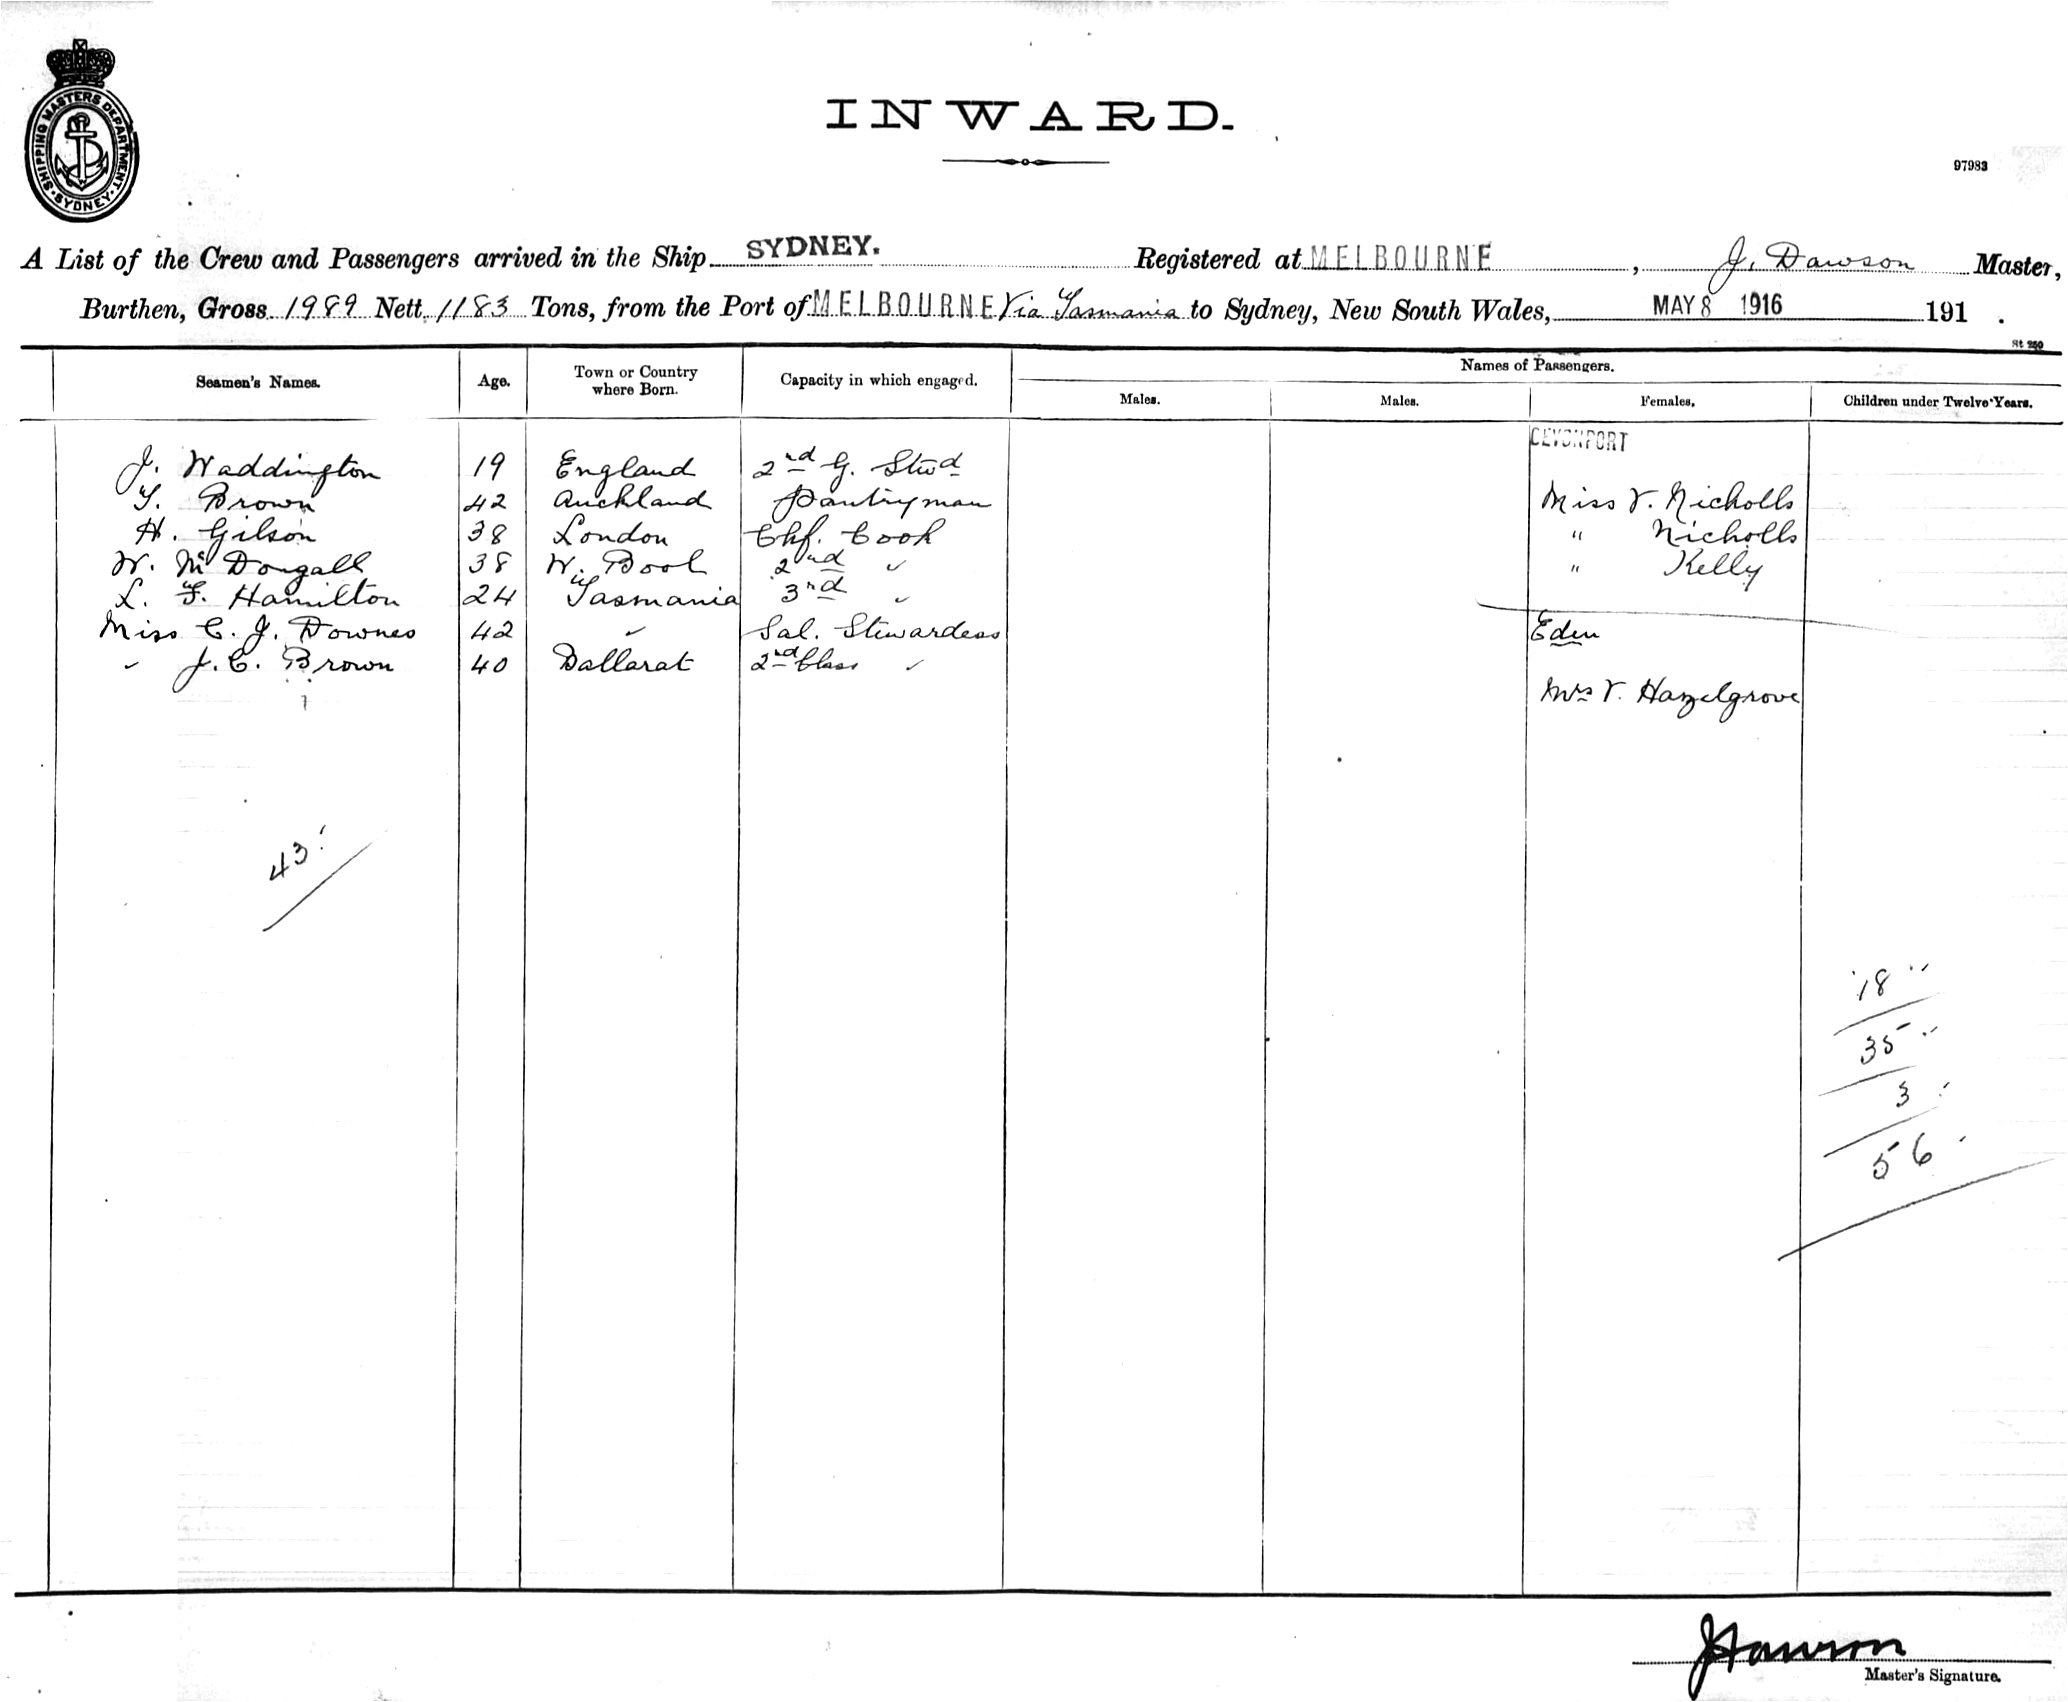 SHIPPING MASTERS DEPARTMENT. SYDNEY
INWARD.
97983
A List of the Crew and Passengers arrived in the Ship SYDNEY. Registered at MELBOURNE, J. Dawson Master,
Burthen, Gross 1989 Nett 1183 Tons, from the Port of MELBOURNE Via Tasmania to Sydney, New South Wales, MAY 8 1916 191 .
St 250
Seamen's Names. Age. Town or Country where Born. Capacity in which engaged. Names of Passengers.
Males. Males. Females. Children under Twelve Years.
DEVONPORT
J. Waddington 19 England 2nd G. Stwd
T. Brown 42 Auckland Pantryman Miss V. Nicholls
H. Gilson 38 London Chf. Cook " Nicholls
W. Mc Dougall 38 W. Bool 2nd " " Kelly
L. F. Hamilton 24 Tasmania 3rd "
Miss C. J. Downes 42 " Sal. Stewardess Eden
" J. C. Brown 40 Ballarat 2nd Class "
Mrs V. Hazelgrove
7
43
18
35
3
56
J Dawson
Master's Signature.